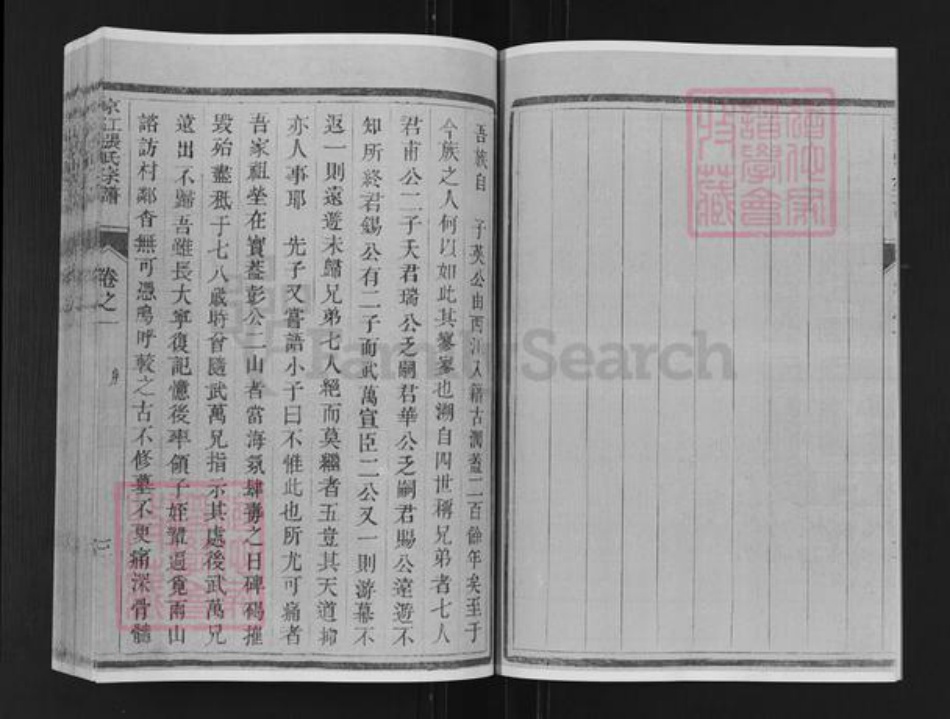 吾族自　子英公由西江入籍古潤蓋二百餘年矣至于
今族之人何以如此其寥寥也溯自四世稱兄弟者七人
君甫公二子夭君瑞公乏嗣君華公乏嗣君賜公遠遊不
知所終君錫公有二子而武萬宣臣二公又一則游幕不
返一則遠遊未歸兄弟七人絕而莫繼者五豈其天道抑
亦人事耶　先子又嘗語小子曰不惟此也所尤可痛者
吾家祖塋在寶蓋彭公二山者當海氛肆毒之日碑碣摧
毀殆盡祗于七八歲時曾隨武萬兄指示其處後武萬兄
遠出不歸吾雖長大寧復記憶後率領子姪輩遍覓兩山
諮訪村鄰杳無可憑嗚呼較之古不修墓不更痛深骨髓
京江張氏宗譜
卷之一
序
三
FamilySearch